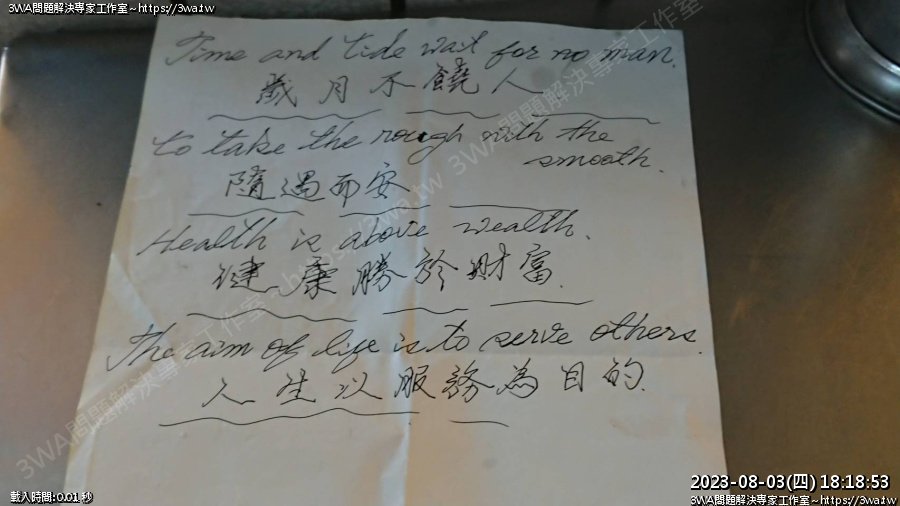 3WA問題解決專家工作室~https://3wa.tw
3WA問題解決專家工作室~https://3wa.tw
Time and tide wait for no man.
歲月不饒人
to take the rough with the
smooth.
隨遇而安
Health is above wealth.
健康勝於財富.
The aim of life is to serve others.
人生以服務為目的.
3WA問題解決專家工作室~https://3wa.tw
2023-08-03(四) 18:18:53
載入時間:0.01 秒
3WA問題解決專家工作室~https://3wa.tw